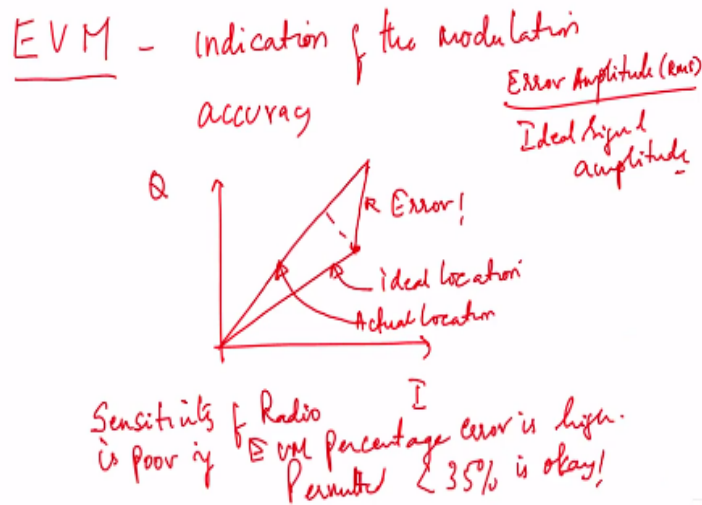 EVM - Indication of the modulation
accuracy
Error Amplitude (RMS)
Ideal Signal
amplitude
Q
Error!
ideal location
Actual location
I
Sensitivity of Radio
is poor if EVM percentage error is high.
Permitted < 35% is okay!